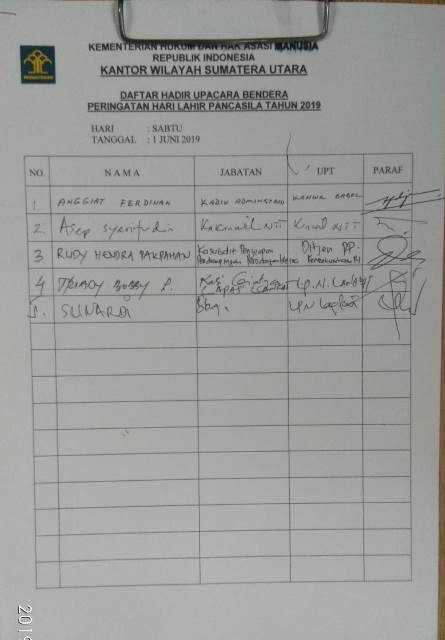 KEMENTERIAN HUKUM DAN HAK ASASI MANUSIA
REPUBLIK INDONESIA
KANTOR WILAYAH SUMATERA UTARA
DAFTAR HADIR UPACARA BENDERA
PERINGATAN HARI LAHIR PANCASILA TAHUN 2019
HARI : SABTU
TANGGAL : 1 JUNI 2019
NO. NAMA JABATAN UPT PARAF
1 ANGGIAT FERDINAN KADIV ADMINISTRASI KANWIL BABEL
2 Asep Syarifudin Kakanwil NTT Kanwil NTT
3 RUDY HENDRA PAKPAHAN Kasubdit Ditjen PP.
4 BOBBY P. Kasi
5. SUNARDI
2019